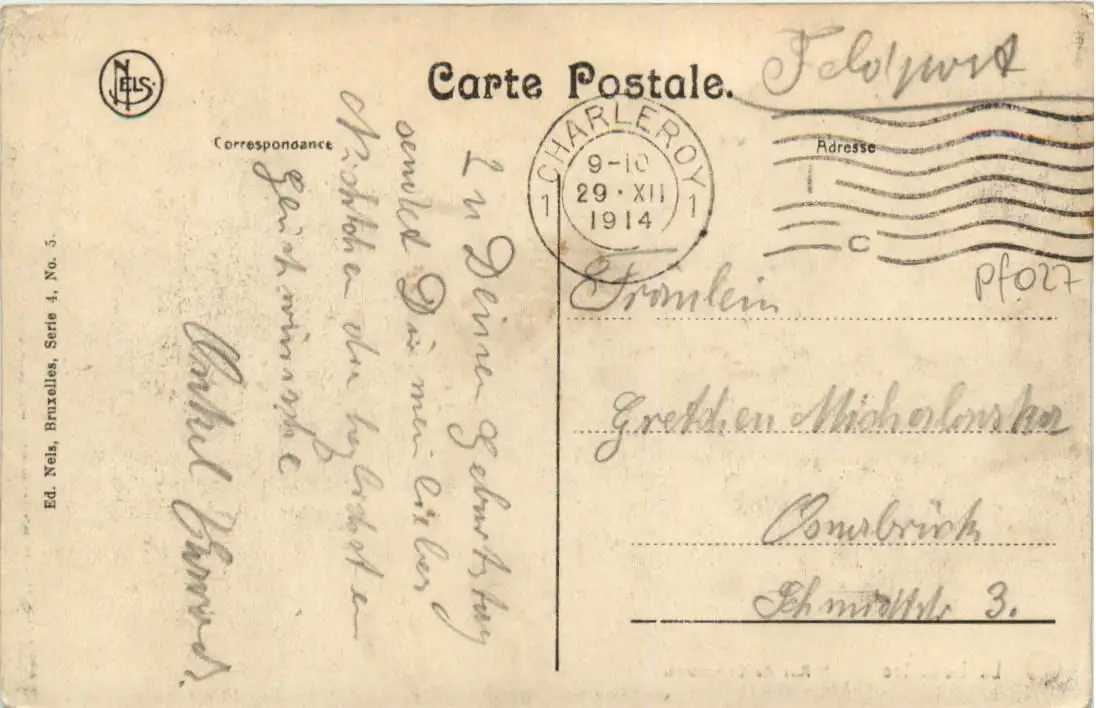 NELS.
Carte Postale.
Feldpost
Correspondance
Adresse
CHARLEROY
1 1
9-10
29·XII
1914
C
pf027
Zu Deinem Geburtstag
sendet Dir mein liebes
Nichtchen die herzlichsten
Glückwünsche
Onkel
Fräulein
Gretchen
Osnabrück
Schmidtstr 3.
Ed. Nels, Bruxelles, Serie 4, No. 5.